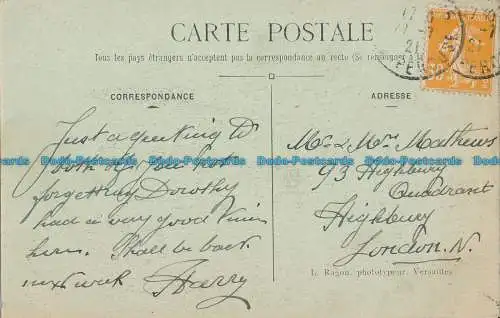 CARTE POSTALE
Tous les pays étrangers n'acceptent pas la correspondance au recto (Se renseigner
CORRESPONDANCE
ADRESSE
Just a greeting to
both of you not
forgetting Dorothy
had a very good time
here. Shall be back
next week Harry
Mr & Mrs Mathews
93 Highbury
Quadrant
Highbury
London. N.
L. Ragon, phototypeur, Versailles